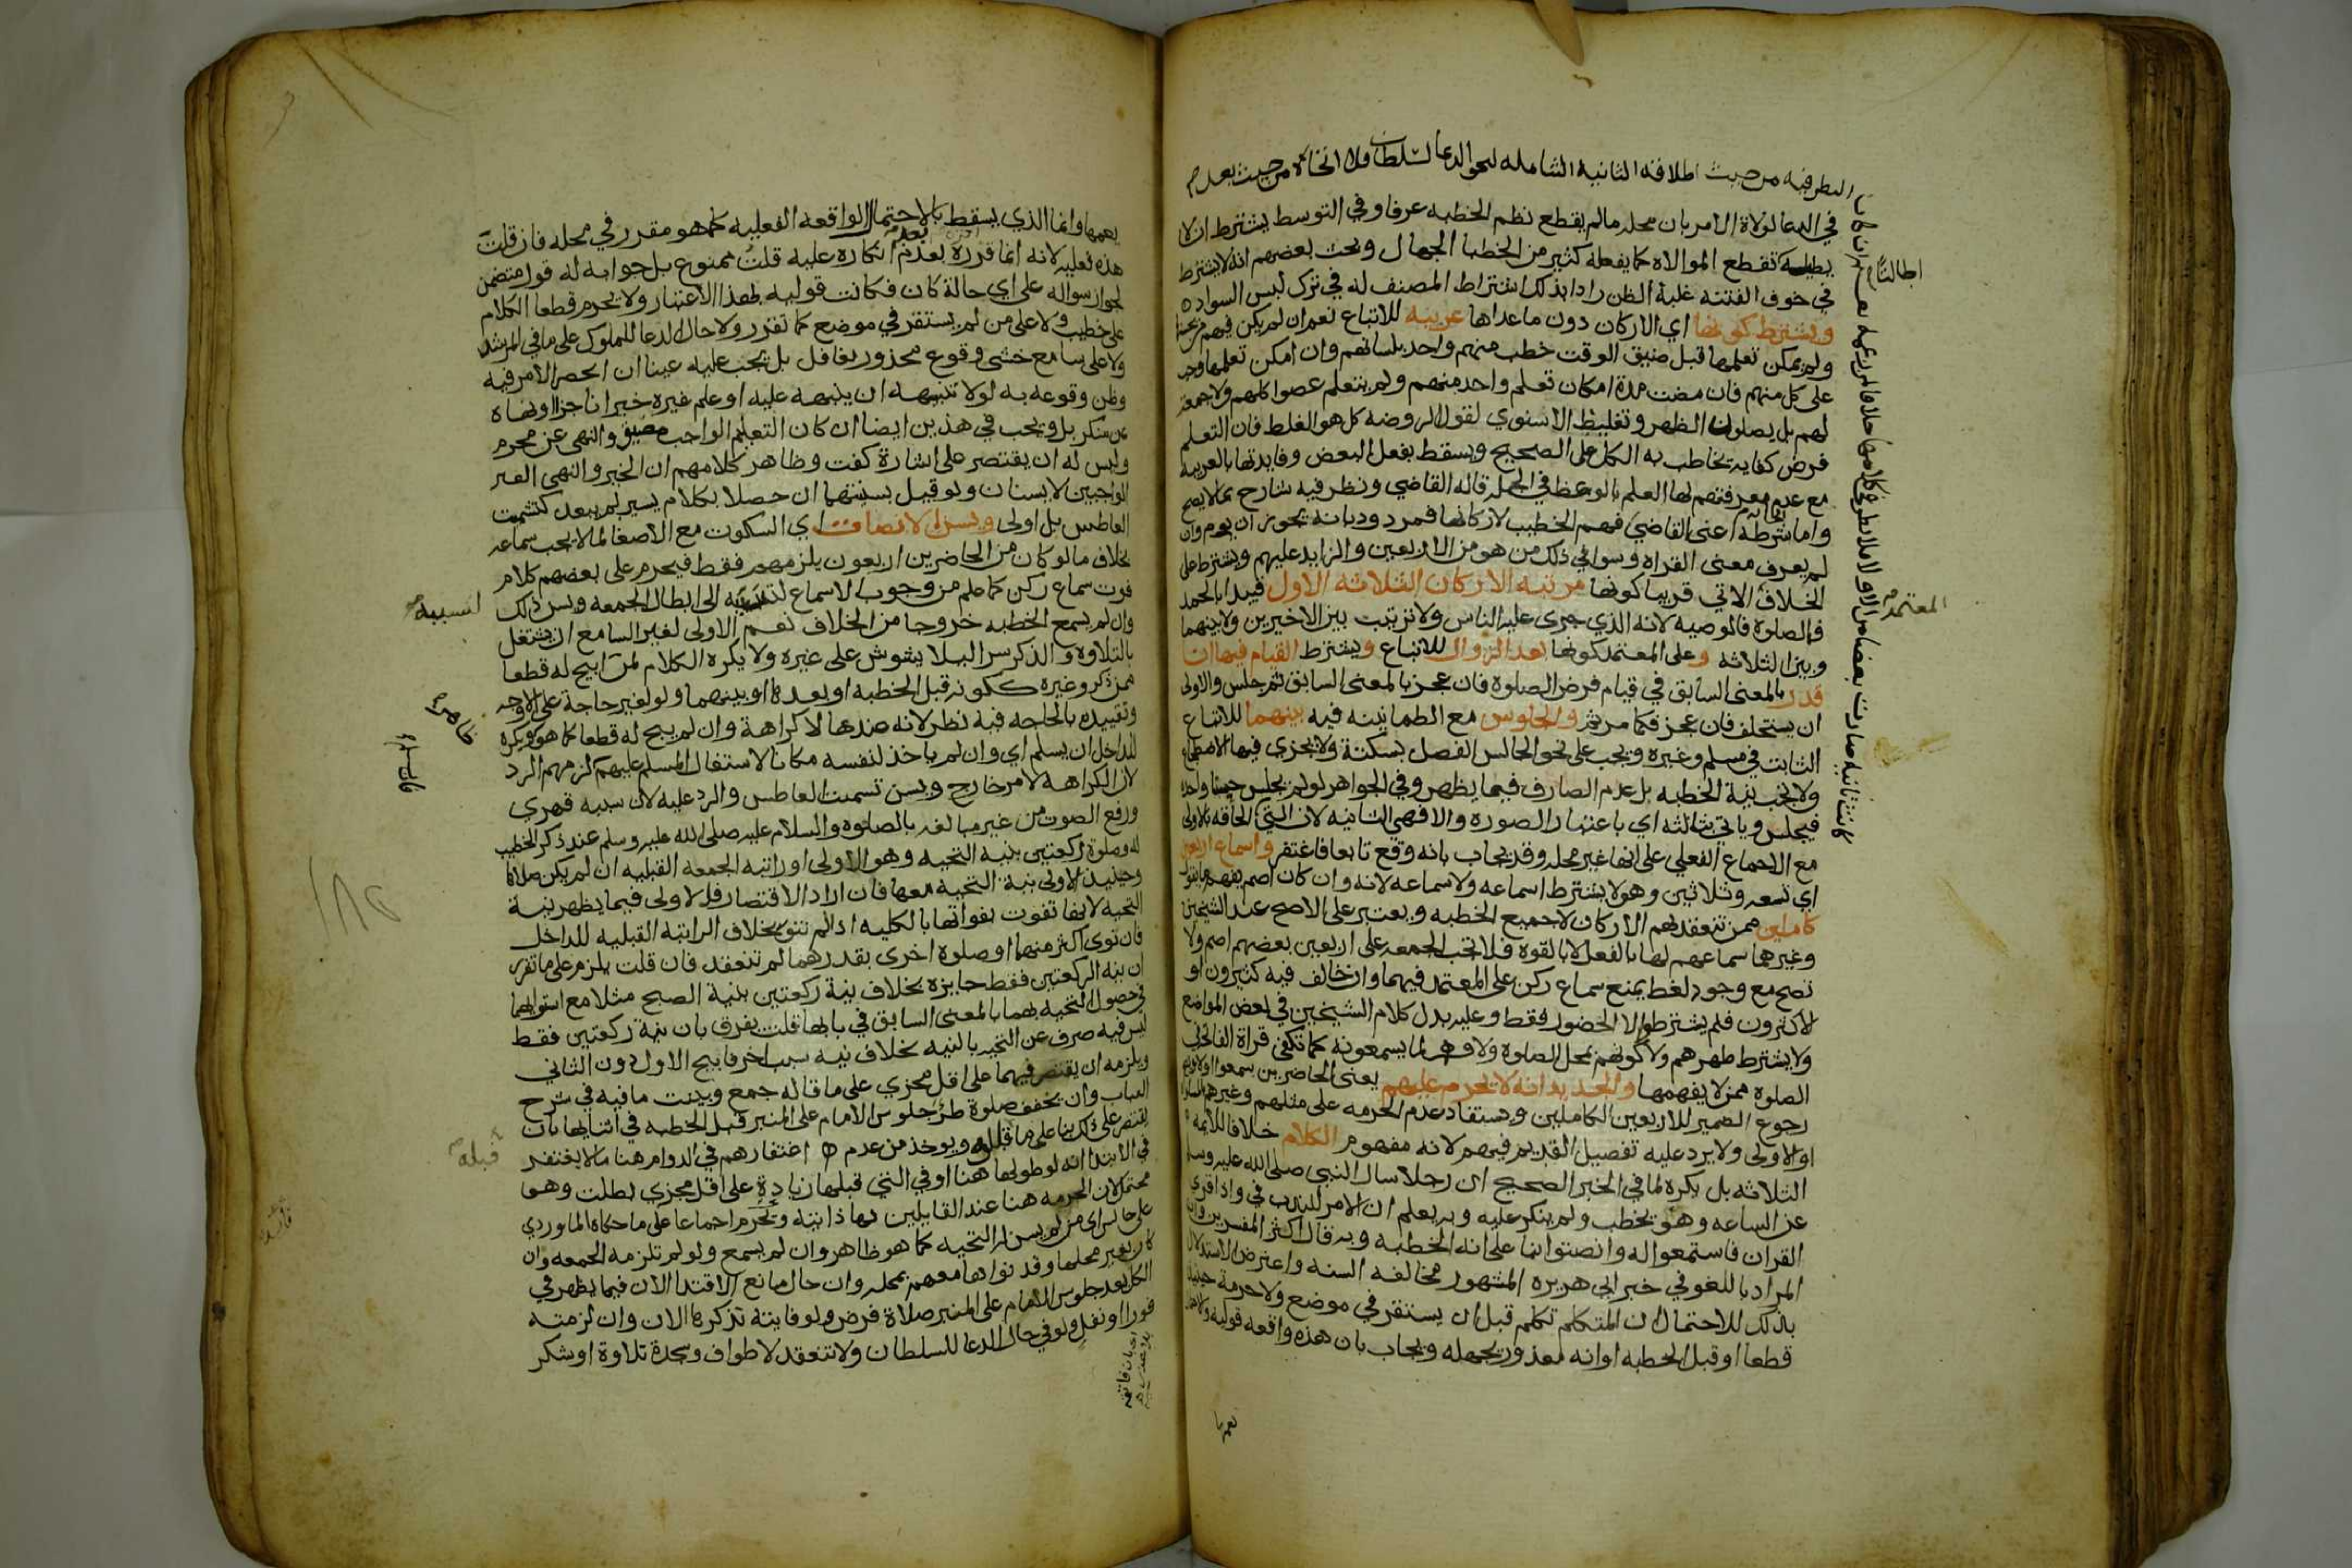 في الدعا لولاة الامر بان محله مالم يقطع نظم الخطبه عرفا وفي التوسط يشترط ان لا
يطيله تقطع الموالاه كما يفعله كثير من الخطبا الجهال وبحث بعضهم انه لا يشترط
في خوف الفتنه غلبة الظن رادا بذلك اشتراط المصنف له في ترك لبس السواد
ويشترط كونها اي الاركان دون ماعداها عربيه للاتباع نعم ان لم يكن فيهم
ولم يمكن تعلمها قبل ضيق الوقت خطب منهم واحد بلسانهم وان امكن تعلمها وجب
على كل منهم فان مضت مدة امكان تعلم واحد منهم ولم يتعلم عصوا كلهم ولا جمعة
لهم بل يصلون الظهر وتغليط الاسنوي لقول الروضه كل هو الغلط فان التعلم
فرض كفايه يخاطب به الكل على الصحيح ويسقط بفعل البعض وفايدتها بالعربيه
مع عدم معرفتهم لها العلم بالوعظ في الجمله قاله القاضي ونظر فيه شارح بما لا يصح
واما شرطه اعني القاضي فهم الخطيب لاركانها فمردود بانه يجوز ان يؤم وان
لم يعرف معنى القراه وسوا في ذلك من هو من الاربعين والزايد عليهم ويشترط على
الخلاف الاتي قريبا كونها مرتبه الاركان الثلاثه الاول فيبدا بالحمد
فالصلوة فالوصيه لانه الذي جرى عليه الناس ولا ترتيب بين الاخيرين ولا بينهما
وبين الثلاثه وعلى المعتمد كونها بعد الزوال للاتباع ويشترط القيام فيها ان
قدر بالمعنى السابق في قيام فرض الصلوة فان عجز بالمعنى السابق ثم جلس والاولى
ان يستخلف فان عجز فكما مر ثم والجلوس مع الطمانينه فيه بينهما للاتباع
الثابت في مسلم وغيره ويجب على نحو الجالس الفصل بسكتة ولا يجزي فيها الاضطجاع
ولا يجب نية الخطبه بل عدم الصارف فيما يظهر وفي الجواهر لو لم يجلس حسبتا واحده
فيجلس وياتي بثالثه اي باعتبار الصوره والا فهي الثانيه لان التي الحاقه بالاولى
مع الاجماع الفعلي على انها غير محله وقد يجاب بانه وقع تابعا فاغتفر واسماع اربعين
اي تسعه وثلاثين وهو لا يشترط اسماعه ولا سماعه لانه وان كان اصم يفهم ما يقول
كاملين ممن تنعقد بهم الاركان لا جميع الخطبه ويعتبر على الاصح عند الشيخين
وغيرهما سماعهم لها بالفعل لا بالقوه فلا تجب الجمعه على اربعين بعضهم اصم ولا
تصح مع وجود لغط يمنع سماع ركن على المعتمد فيهما وان خالف فيه كثيرون او
لاكثرون فلم يشترطوا الا الحضور فقط وعليه يدل كلام الشيخين في بعض المواضع
ولا يشترط طهرهم ولا كونهم بمحل الصلوة ولا فهم لما يسمعونه كما تكفي قراة الفاتحة في
الصلوة ممن لا يفهمها والجديد انه لا يحرم عليهم يعني الحاضرين سمعوا او لا
رجوع الضمير للاربعين الكاملين ويستفاد عدم الحرمه على مثلهم وغيرهم
اولى ولا يرد عليه تفصيل القديم فيهم لانه مفهوم الكلام خلافا للائمه
الثلاثه بل يكره لما في الخبر الصحيح ان رجلا سال النبي صلى الله عليه وسلم
عن الساعه وهو يخطب ولم ينكر عليه وبه يعلم ان الامر للندب في واذا قري
القران فاستمعوا له وانصتوا بنا على انه الخطبه وبه قال اكثر المفسرين وان
المراد باللغو في خبر ابي هريره المشهور مخالفه السنه واعترض الاستدلال
بذلك للاحتمال ان المتكلم تكلم قبل ان يستقر في موضع ولا حرمة حينئذ
قطعا او قبل الخطبه او انه معذور بجهله ويجاب بان هذه واقعه قوليه
اطالتها
المعتمد
يعمها وانما الذي يسقط بالاحتمال الواقعه الفعليه كما هو مقرر في محله فان قلت
هذه فعليه لانه انما قرره بعدم انكاره عليه قلت ممنوع بل جوابه له قول متضمن
لجواز سواله على اي حالة كان فكانت قوليه بهذا الاعتبار ولا يحرم قطعا الكلام
على خطيب ولا على من لم يستقر في موضع كما تقرر ولا حال الدعا للملوك على ما في المرشد
ولا على سامع خشى وقوع محذور بغافل بل يجب عليه عينا ان انحصر الامر فيه
وظن وقوعه به لولا تنبيهه ان ينبهه عليه او علم غيره خيرا ناجزا او نهاه
عن منكر بل ويجب في هذين ايضا ان كان التعليم الواجب مضيق والنهي عن محرم
وليس له ان يقتصر على اشارة كفت وظاهر كلامهم ان الخير والنهي الغير
الواجبين لا يسنان ولو قيل بسنيتهما ان حصلا بكلام يسير لم يبعد كتشميت
العاطس بل اولى ويسن الانصات اي السكوت مع الاصغا لما لا يجب سماعه
بخلاف مالو كان من الحاضرين اربعون يلزمهم فقط فيحرم على بعضهم كلام
فوت سماع ركن كما علم من وجوب الاسماع لتسببه الى ابطال الجمعه ويسن ذلك
وان لم يسمع الخطبه خروجا من الخلاف نعم الاولى لغير السامع ان يشتغل
بالتلاوه والذكر سرا ليلا يشوش على غيره ولا يكره الكلام لمن ابيح له قطعا
ممن ذكر وغيره ككونه قبل الخطبه او بعدها او بينهما ولو لغير حاجة على الاوجه
وتقييده بالحاجه فيه نظر لانه عندها لا كراهة وان لم يبح له قطعا كما هو ويكره
للداخل ان يسلم اي وان لم ياخذ لنفسه مكانا لاشتغال المسلم عليهم لزمهم الرد
لان الكراهه لامر خارج ويسن تشميت العاطس والرد عليه لان سببه قهري
ورفع الصوت من غير مبالغه بالصلوه والسلام عليه صلى الله عليه وسلم عند ذكر الخطيب
له وصلوة ركعتين بنية التحيه وهو الاولى او راتبه الجمعه القبليه ان لم يكن صلاها
وحينئذ الاولى نية التحيه معها فان اراد الاقتصار فالاولى فيما يظهر نية
التحيه لانها تفوت بفواتها بالكليه اذا لم تنو بخلاف الراتبه القبليه للداخل
فان نوى اكثر منهما او صلوة اخرى بقدرهما لم تنعقد فان قلت يلزم على ما تقرر
ان نية الركعتين فقط جايزه بخلاف نية ركعتين بنية الصبح مثلا مع استوائهما
في حصول التحيه بهما بالمعنى السابق في بابها قلت يفرق بان نية ركعتين فقط
ليس فيه صرف عن التحيه بالنيه بخلاف نية سبب اخر فابيح الاول دون الثاني
ويلزمه ان يقتصر فيهما على اقل مجزي على ما قاله جمع وبينت ما فيه في شرح
العباب وان يخفف صلوة طرا جلوس الامام على المنبر قبل الخطبه في اثنايها بان
يقتصر على ذلك بنا على ما قبله ويوخذ من عدم اغتفارهم في الدوام هنا ما لا يغتفر
في الابتدا انه لو طولها هنا او في التي قبلها زيادة على اقل مجزي بطلت وهو
محتمل لان الحرمه هنا عند القايلين بها ذاتيه وتحرم اجماعا على ما حكاه الماوردي
على جالس اي من لم يسن له التحيه كما هو ظاهر وان لم يسمع ولو لم تلزمه الجمعه وان
كان بغير محلها وقد نواها معهم بمحله وان حال مانع الاقتدا الان فيما يظهر في
الكل بعد جلوس الامام على المنبر صلاة فرض ولو فايتة تذكرها الان وان لزمته
فورا او نفل ولو في حال الدعا للسلطان ولا تنعقد لا طواف وسجدة تلاوة او شكر
قبله